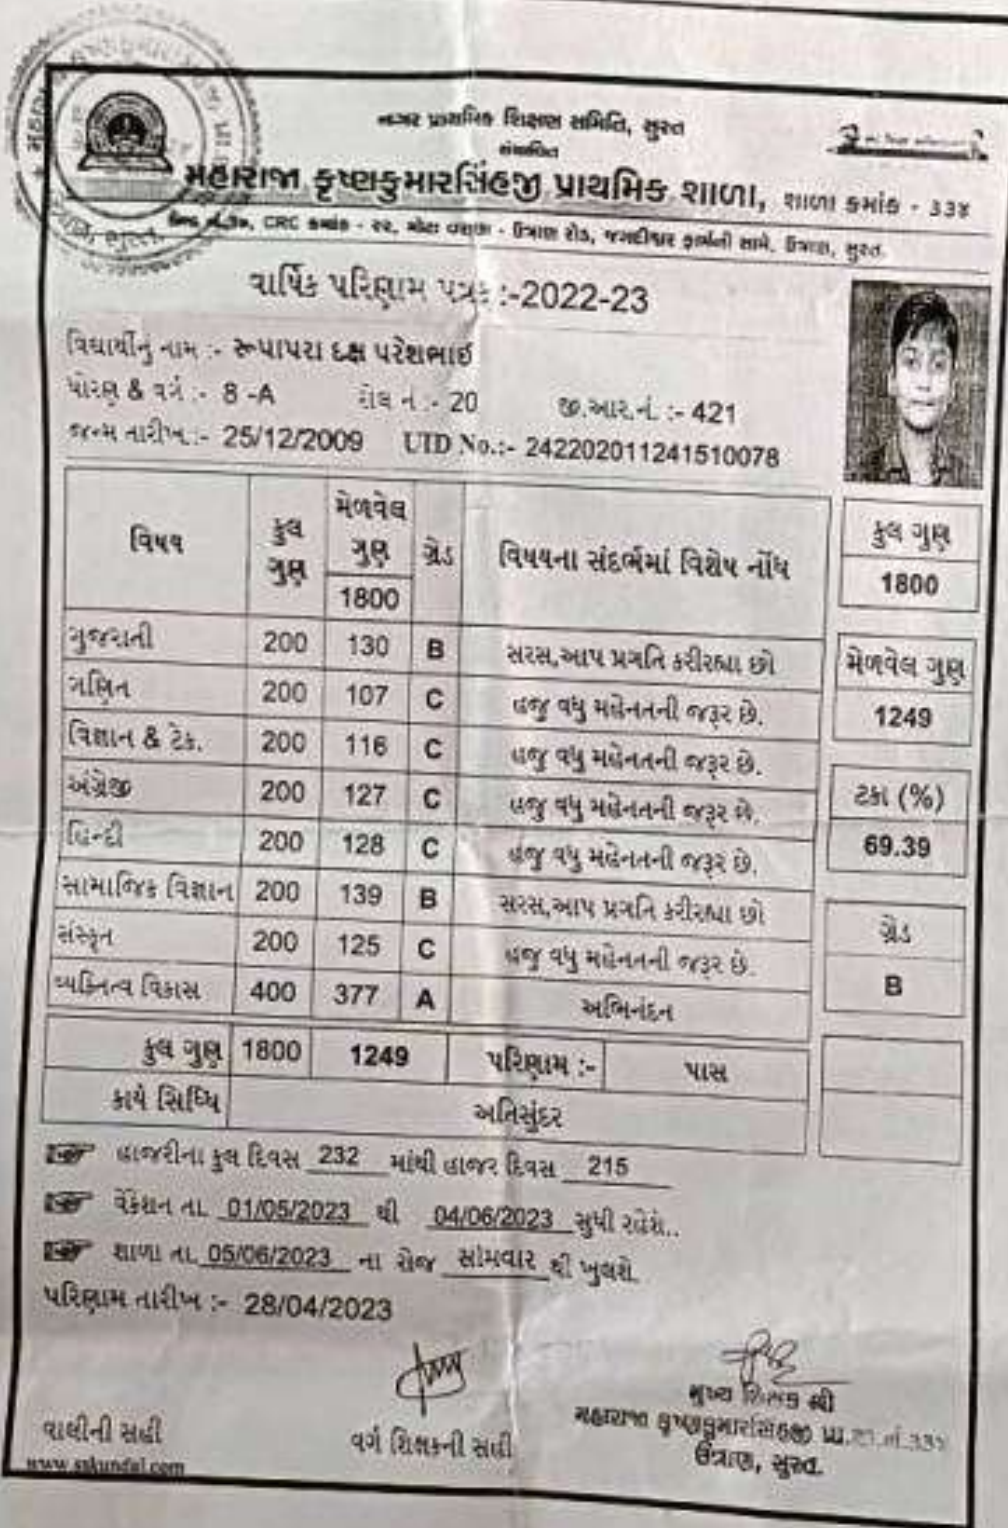 નગર પ્રાથમિક શિક્ષણ સમિતિ, સુરત
સંચાલિત
મહારાજા કૃષ્ણકુમારસિંહજી પ્રાથમિક શાળા, શાળા ક્રમાંક - ૩૩૪
CRC ક્રમાંક - ૨૨, મોટા વરાછા - ઉત્રાણ રોડ, જગદીશ્વર ફાર્મની સામે, ઉત્રાણ, સુરત.
વાર્ષિક પરિણામ પત્રક :-2022-23
વિદ્યાર્થીનું નામ :- રૂપાપરા દક્ષ પરેશભાઈ
ધોરણ & વર્ગ :- 8 -A રોલ નં :- 20 જી.આર.નં. :- 421
જન્મ તારીખ :- 25/12/2009 UID No.:- 242202011241510078
વિષય કુલ ગુણ મેળવેલ ગુણ 1800 ગ્રેડ વિષયના સંદર્ભમાં વિશેષ નોંધ
ગુજરાતી 200 130 B સરસ,આપ પ્રગતિ કરીરહ્યા છો
ગણિત 200 107 C હજુ વધુ મહેનતની જરૂર છે.
વિજ્ઞાન & ટેક. 200 116 C હજુ વધુ મહેનતની જરૂર છે.
અંગ્રેજી 200 127 C હજુ વધુ મહેનતની જરૂર છે.
હિન્દી 200 128 C હજુ વધુ મહેનતની જરૂર છે.
સામાજિક વિજ્ઞાન 200 139 B સરસ,આપ પ્રગતિ કરીરહ્યા છો
સંસ્કૃત 200 125 C હજુ વધુ મહેનતની જરૂર છે.
વ્યક્તિત્વ વિકાસ 400 377 A અભિનંદન
કુલ ગુણ 1800 1249 પરિણામ :- પાસ
કાર્ય સિધ્ધિ અતિસુંદર
કુલ ગુણ
1800
મેળવેલ ગુણ
1249
ટકા (%)
69.39
ગ્રેડ
B
હાજરીના કુલ દિવસ 232 માંથી હાજર દિવસ 215
વેકેશન તા. 01/05/2023 થી 04/06/2023 સુધી રહેશે..
શાળા તા. 05/06/2023 ના રોજ સોમવાર થી ખુલશે.
પરિણામ તારીખ :- 28/04/2023
વાલીની સહી
વર્ગ શિક્ષકની સહી
મુખ્ય શિક્ષક શ્રી
મહારાજા કૃષ્ણકુમારસિંહજી પ્રા.શા.નં.૩૩૪
ઉત્રાણ, સુરત.
www.sskundal.com